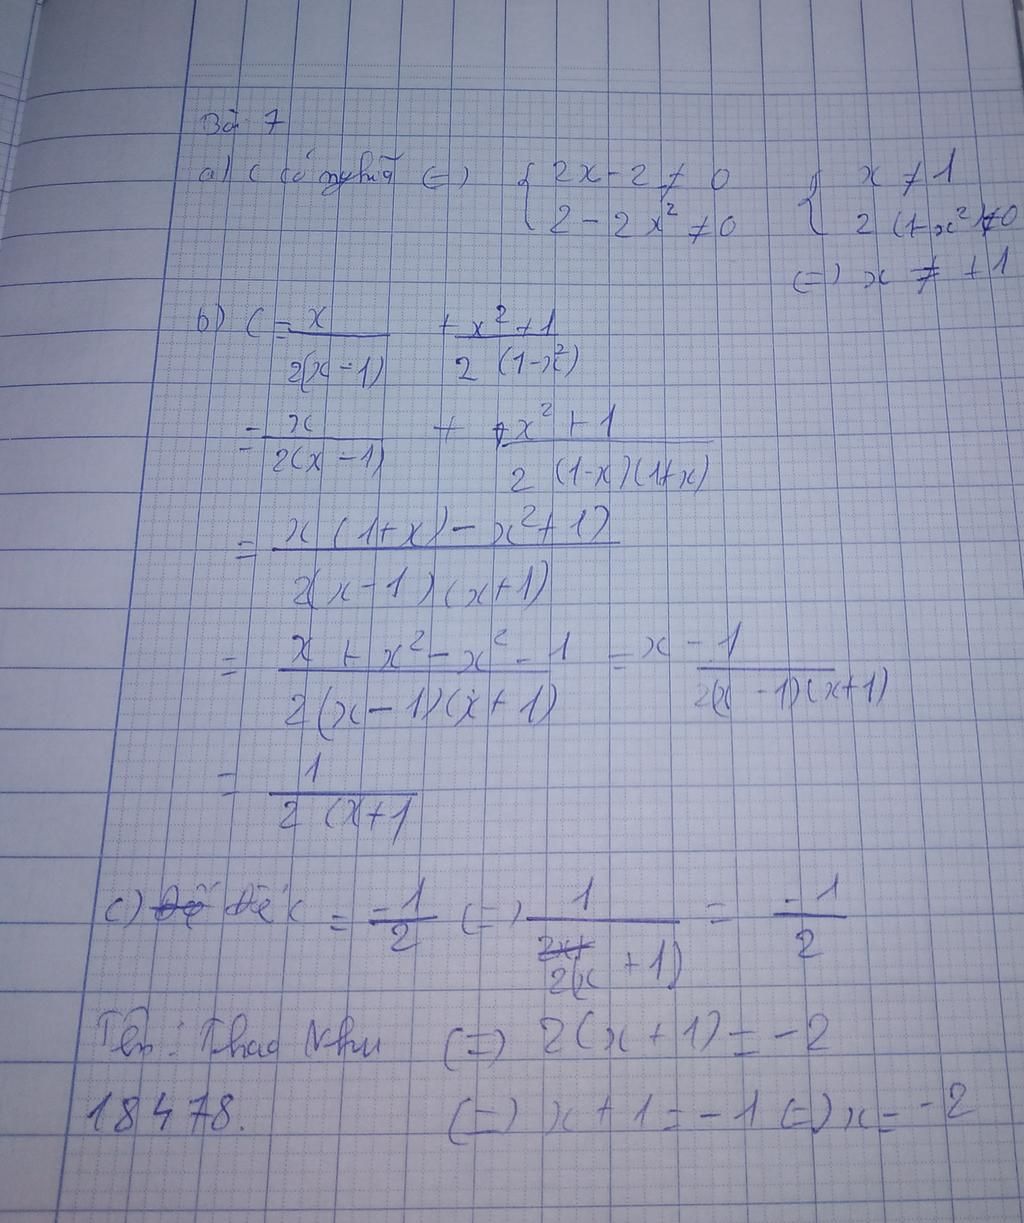 Bài 7
a) C có nghĩa (=) { 2x - 2 ≠ 0 { x ≠ 1
2 - 2x² ≠ 0 2 (1-x²) ≠ 0
(=) x ≠ +1
b) C = x / 2(x - 1) + x² + 1 / 2 (1-x²)
= x / 2(x - 1) + x² + 1 / 2 (1-x)(1+x)
= x (1+x) - x² + 1) / 2(x - 1) (x+1)
= x + x² - x² - 1 / 2(x - 1)(x + 1) = x - 1 / 2(x - 1)(x+1)
= 1 / 2 (x+1
c) Để C = -1 / 2 (=) 1 / 2(x + 1) = -1 / 2
Tên : Thao Nhu (=) 2(x + 1) = -2
18478. (=) x + 1 = -1 (=) x = -2